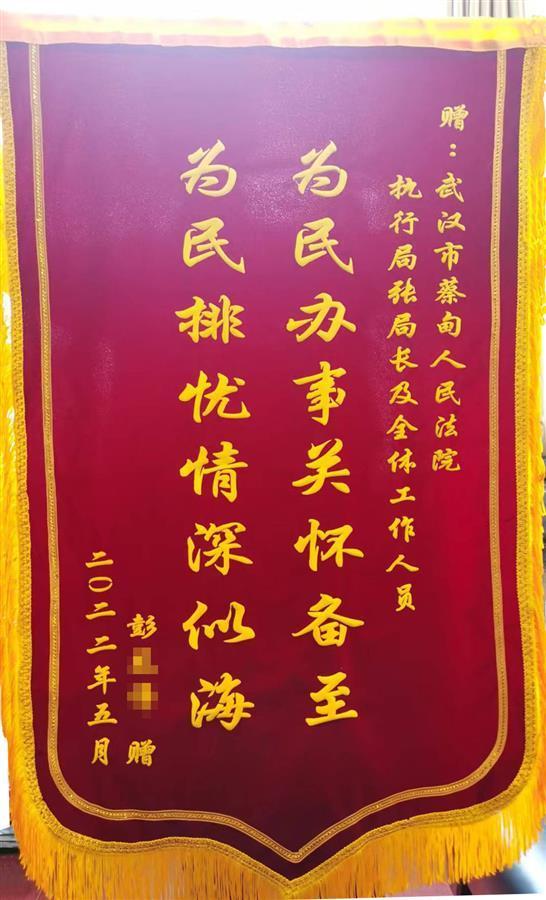 赠：武汉市蔡甸人民法院
执行局张局长及全体工作人员
为民办事关怀备至
为民排忧情深似海
彭 赠
二〇二二年五月